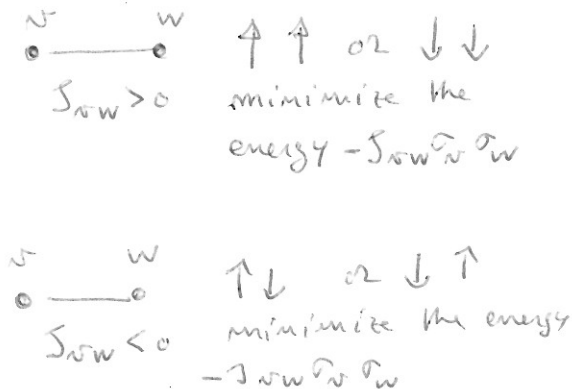 v w
↑ ↑ or ↓ ↓
J_vw > 0 minimize the
energy - J_vw σ_v σ_w
v w
↑ ↓ or ↓ ↑
J_vw < 0 minimize the energy
- J_vw σ_v σ_w